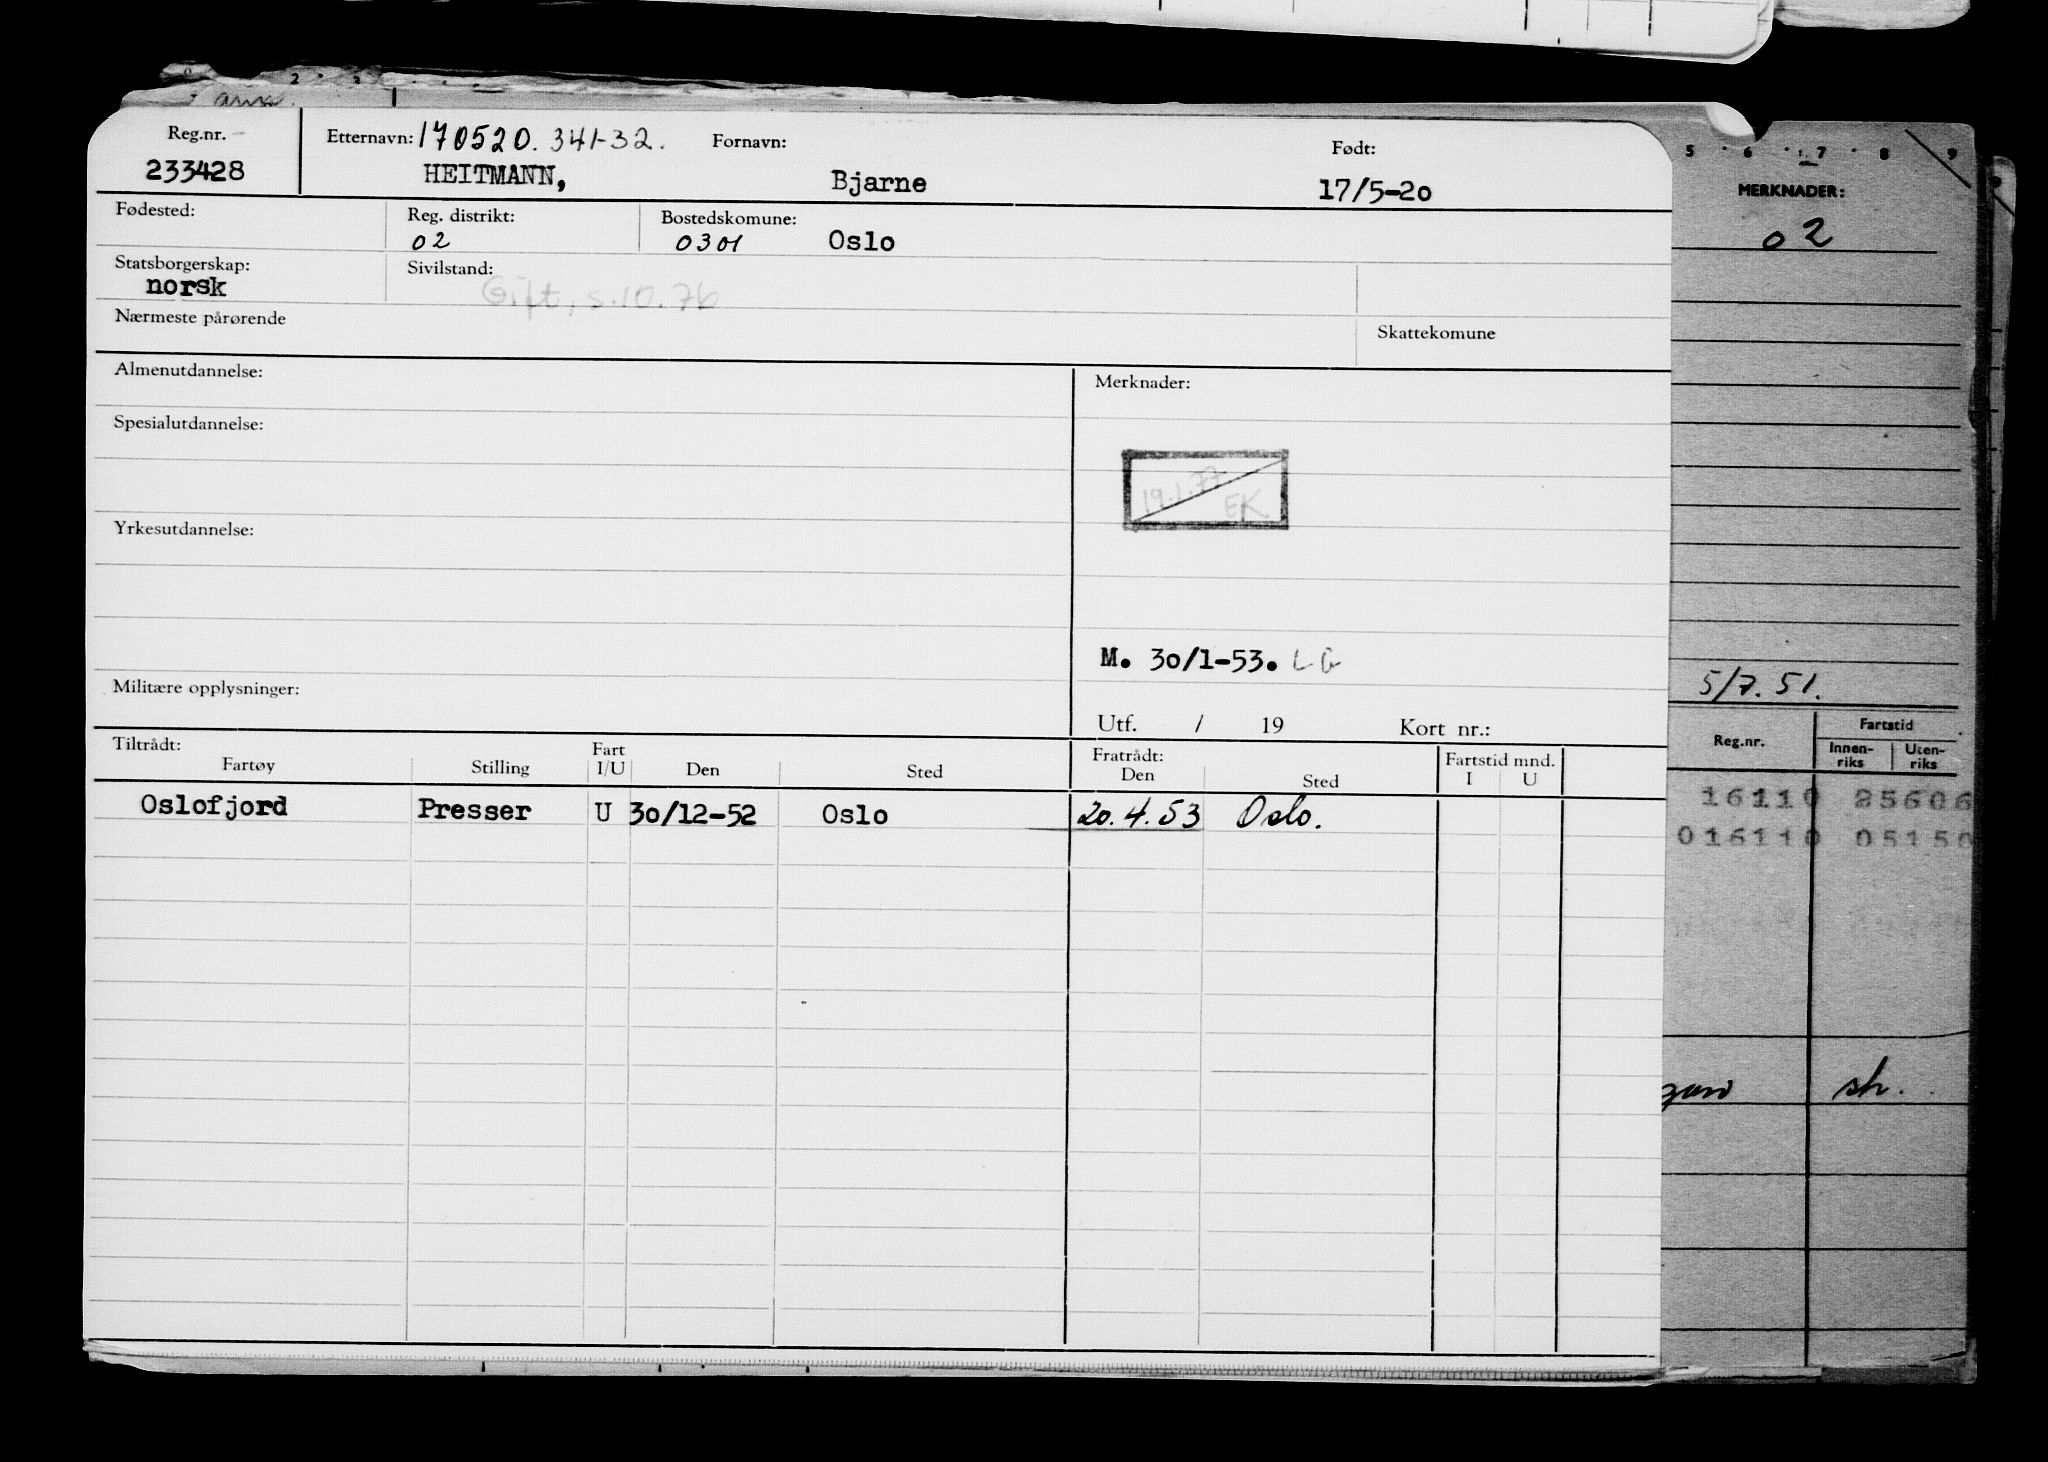 Reg.nr.
233428
Etternavn: 170520. 341-32.
HEITMANN,
Fornavn:
Bjarne
Født:
17/5-20
Fødested:
Reg. distrikt:
02
Bostedskomune:
0301 Oslo
Statsborgerskap:
norsk
Sivilstand:
Gift, s.10.76
Nærmeste pårørende
Skattekomune
Almenutdannelse:
Merknader:
Spesialutdannelse:
19.1.77
EK
Yrkesutdannelse:
M. 30/1-53. LG
Militære opplysninger:
Utf. / 19 Kort nr.:
Tiltrådt:
Fartøy Stilling Fart I/U Den Sted
Fratrådt:
Den Sted
Fartstid mnd.
I U
Oslofjord Presser U 30/12-52 Oslo 20.4.53 Oslo.
2 3
5 6 7 8 9
MERKNADER:
02
5/7.51.
Reg.nr.
Fartstid
Innen-
riks
Uten-
riks
16110 25606
016110 05150